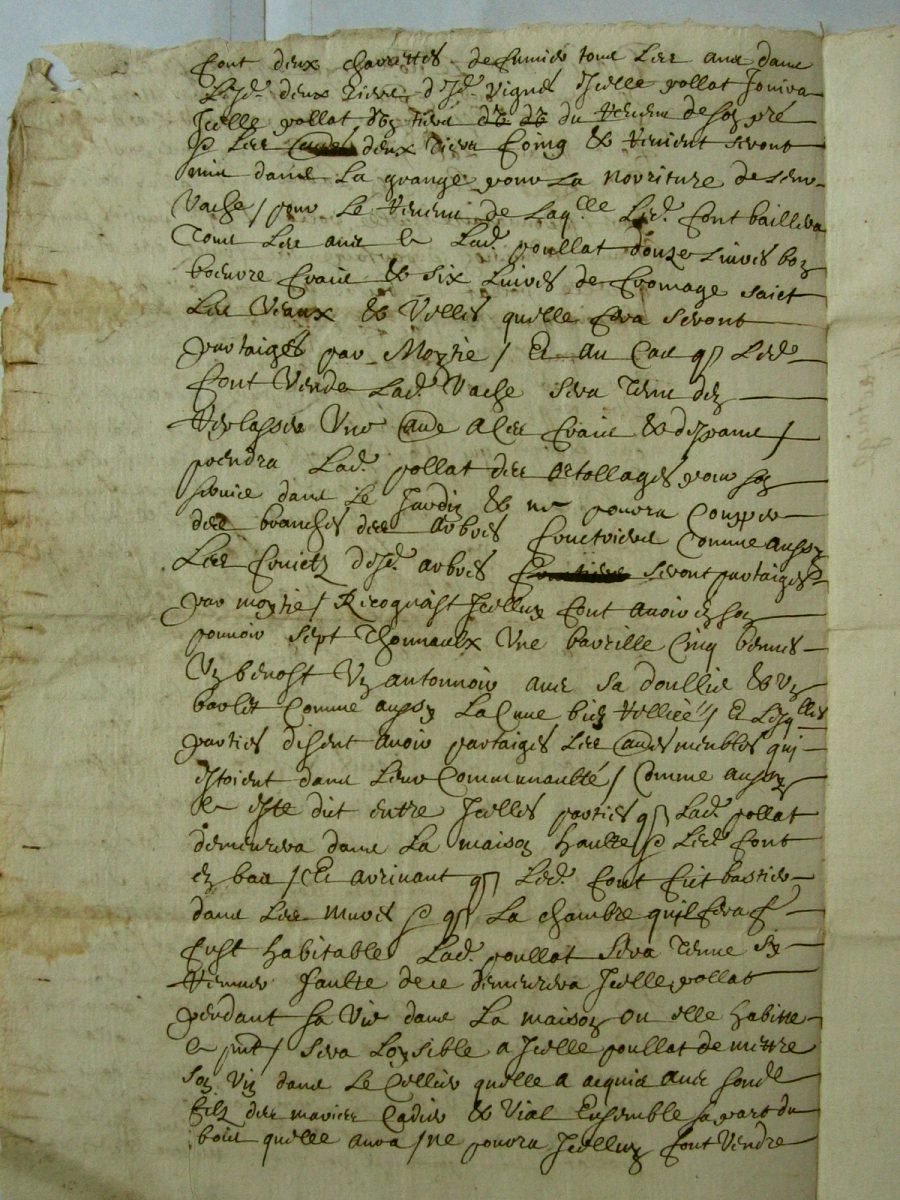 font deux charrettes de fumier tous les ans dans
lesd. deux tiers desd. vignes Icelle pollat Jouira
Icelle pollat du tiers du du revenu de son pré
les deux tiers foing & revient seront
mis dans la grange pour la norriture de leur
vache / pour le revenu de laqlle led. font baillera
tous les ans a lad. poullat douze livres bon
beurre frais & six livres de fromage
les veaux & velles quelle fera seront
partaigés par moytié / Et au cas q led.
font vende lad. vache sera tenu den
une a ses frais & despans /
prendra lad. pollat des ortollages pour son
service dans le Jardin & ne pourra coupper
des branches des arbres fructiers comme aussy
les fruictz desd. arbres seront partaiges
par moytié / Recognoist Icelluy font avoir en son
pouvoir sept thonneaulx une barreille cinq bennes
un benost un antonnoir avec sa doullie & un
barlet comme aussy la cuve bien relliée / Et lesqlles
parties disent avoir partaiges les meubles qui
estoient dans leur communaulté / comme aussy
a esté dit entre Icelles parties q lad. pollat
demeurera dans la maison haulte & led. font
en bas / Et arrivant q led. font fict bastir
dans les mures & q la chambre quil fera f
fust habitable lad. poullat sera tenue sy
faulte de ce demeurera Icelle pollat
pendant sa vie dans la maison ou elle habitte
a pnt / sera loysible a Icelle poullat de mettre
son vin dans le cellier quelle a acquis avec
filz des mariés Cadier & Vial Ensemble sa part du
bois quelle aura / ne pourra Icelluy font vendre